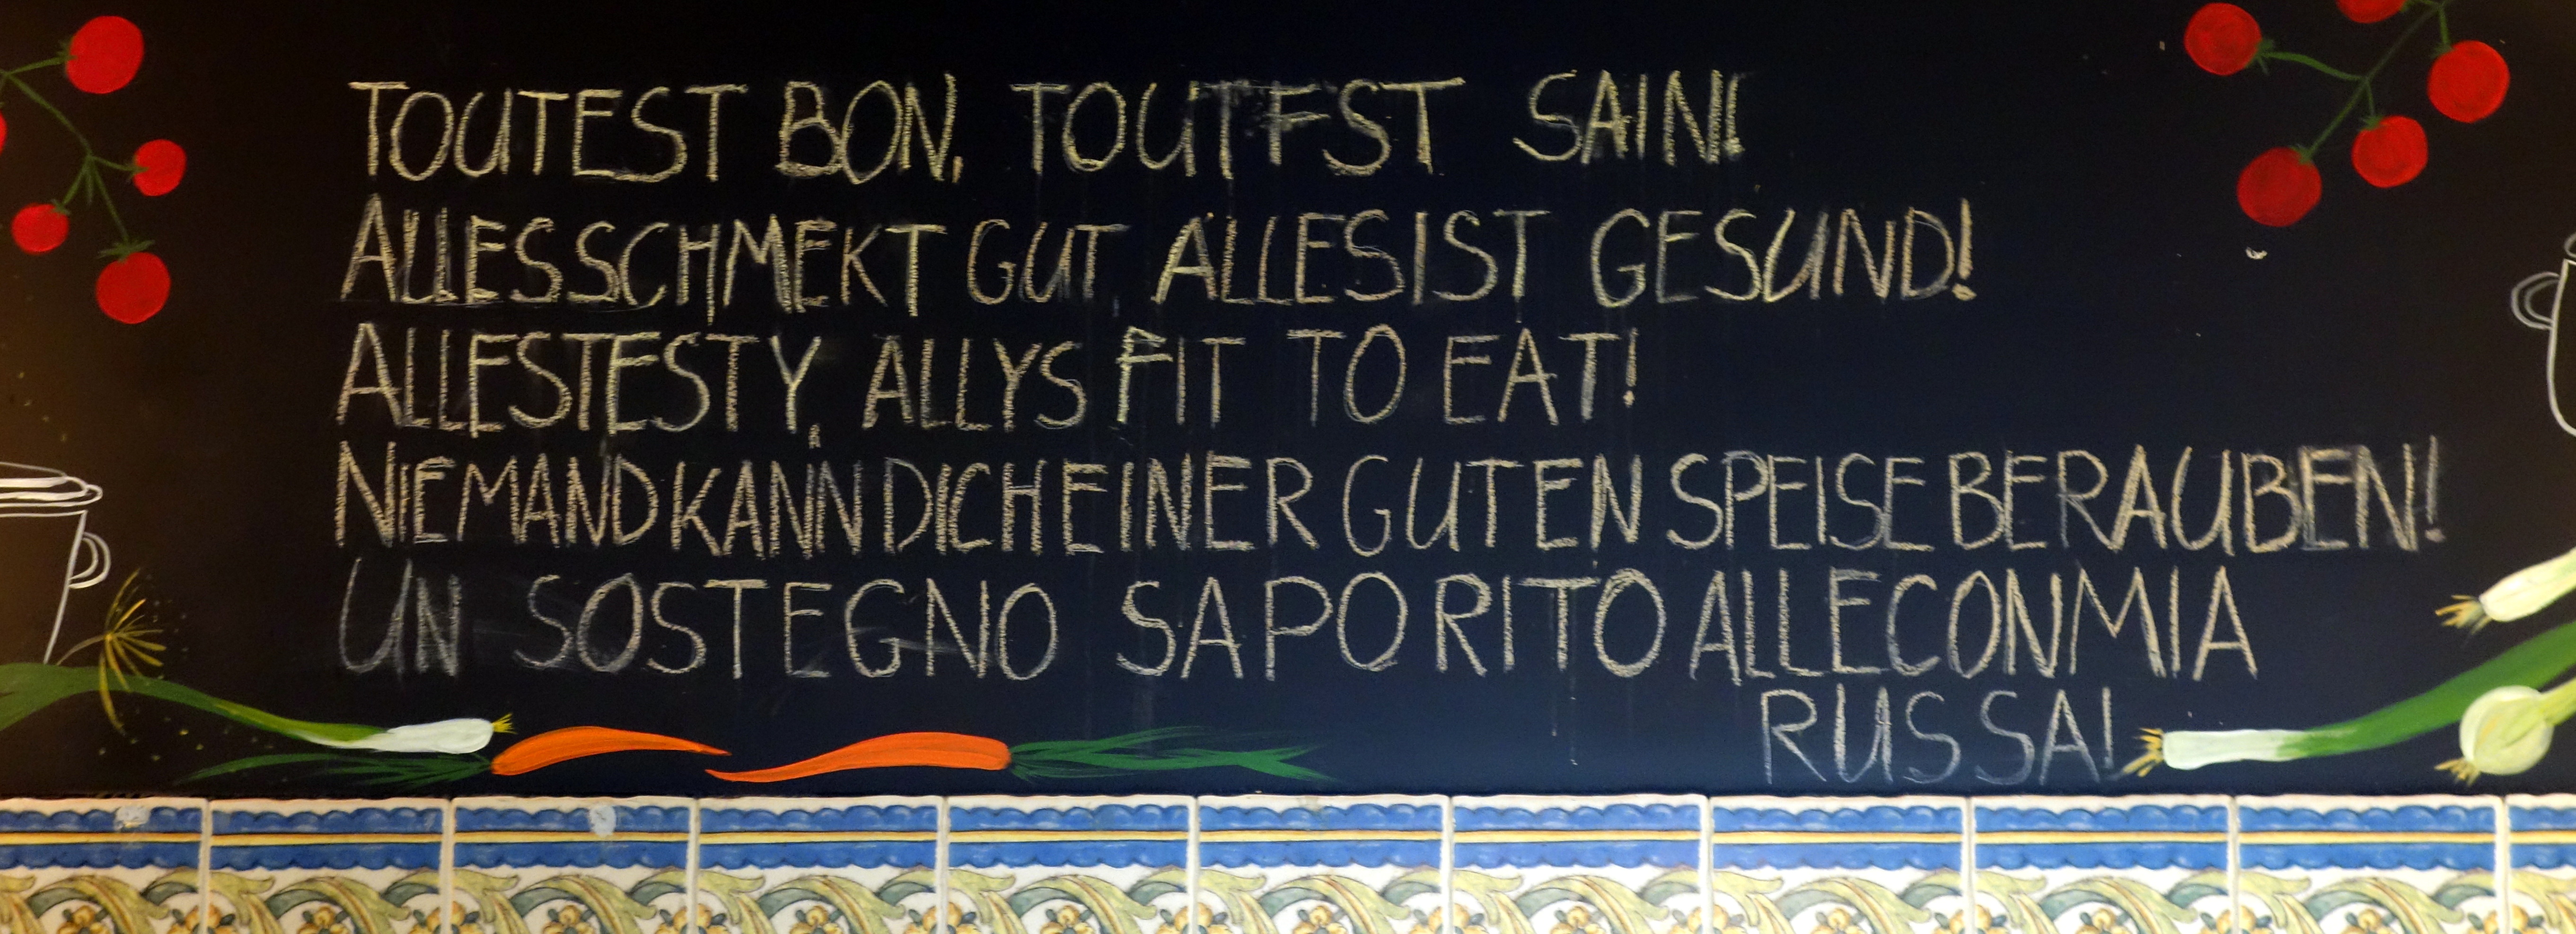 TOUTEST BON, TOUTEST SAIN!
ALLES SCHMEKT GUT, ALLES IST GESUND!
ALLESTESTY, ALLYS FIT TO EAT!
NIEMAND KANN DICH EINER GUTEN SPEISE BERAUBEN!
UN SOSTEGNO SAPORITO ALLECONMIA
RUSSA!